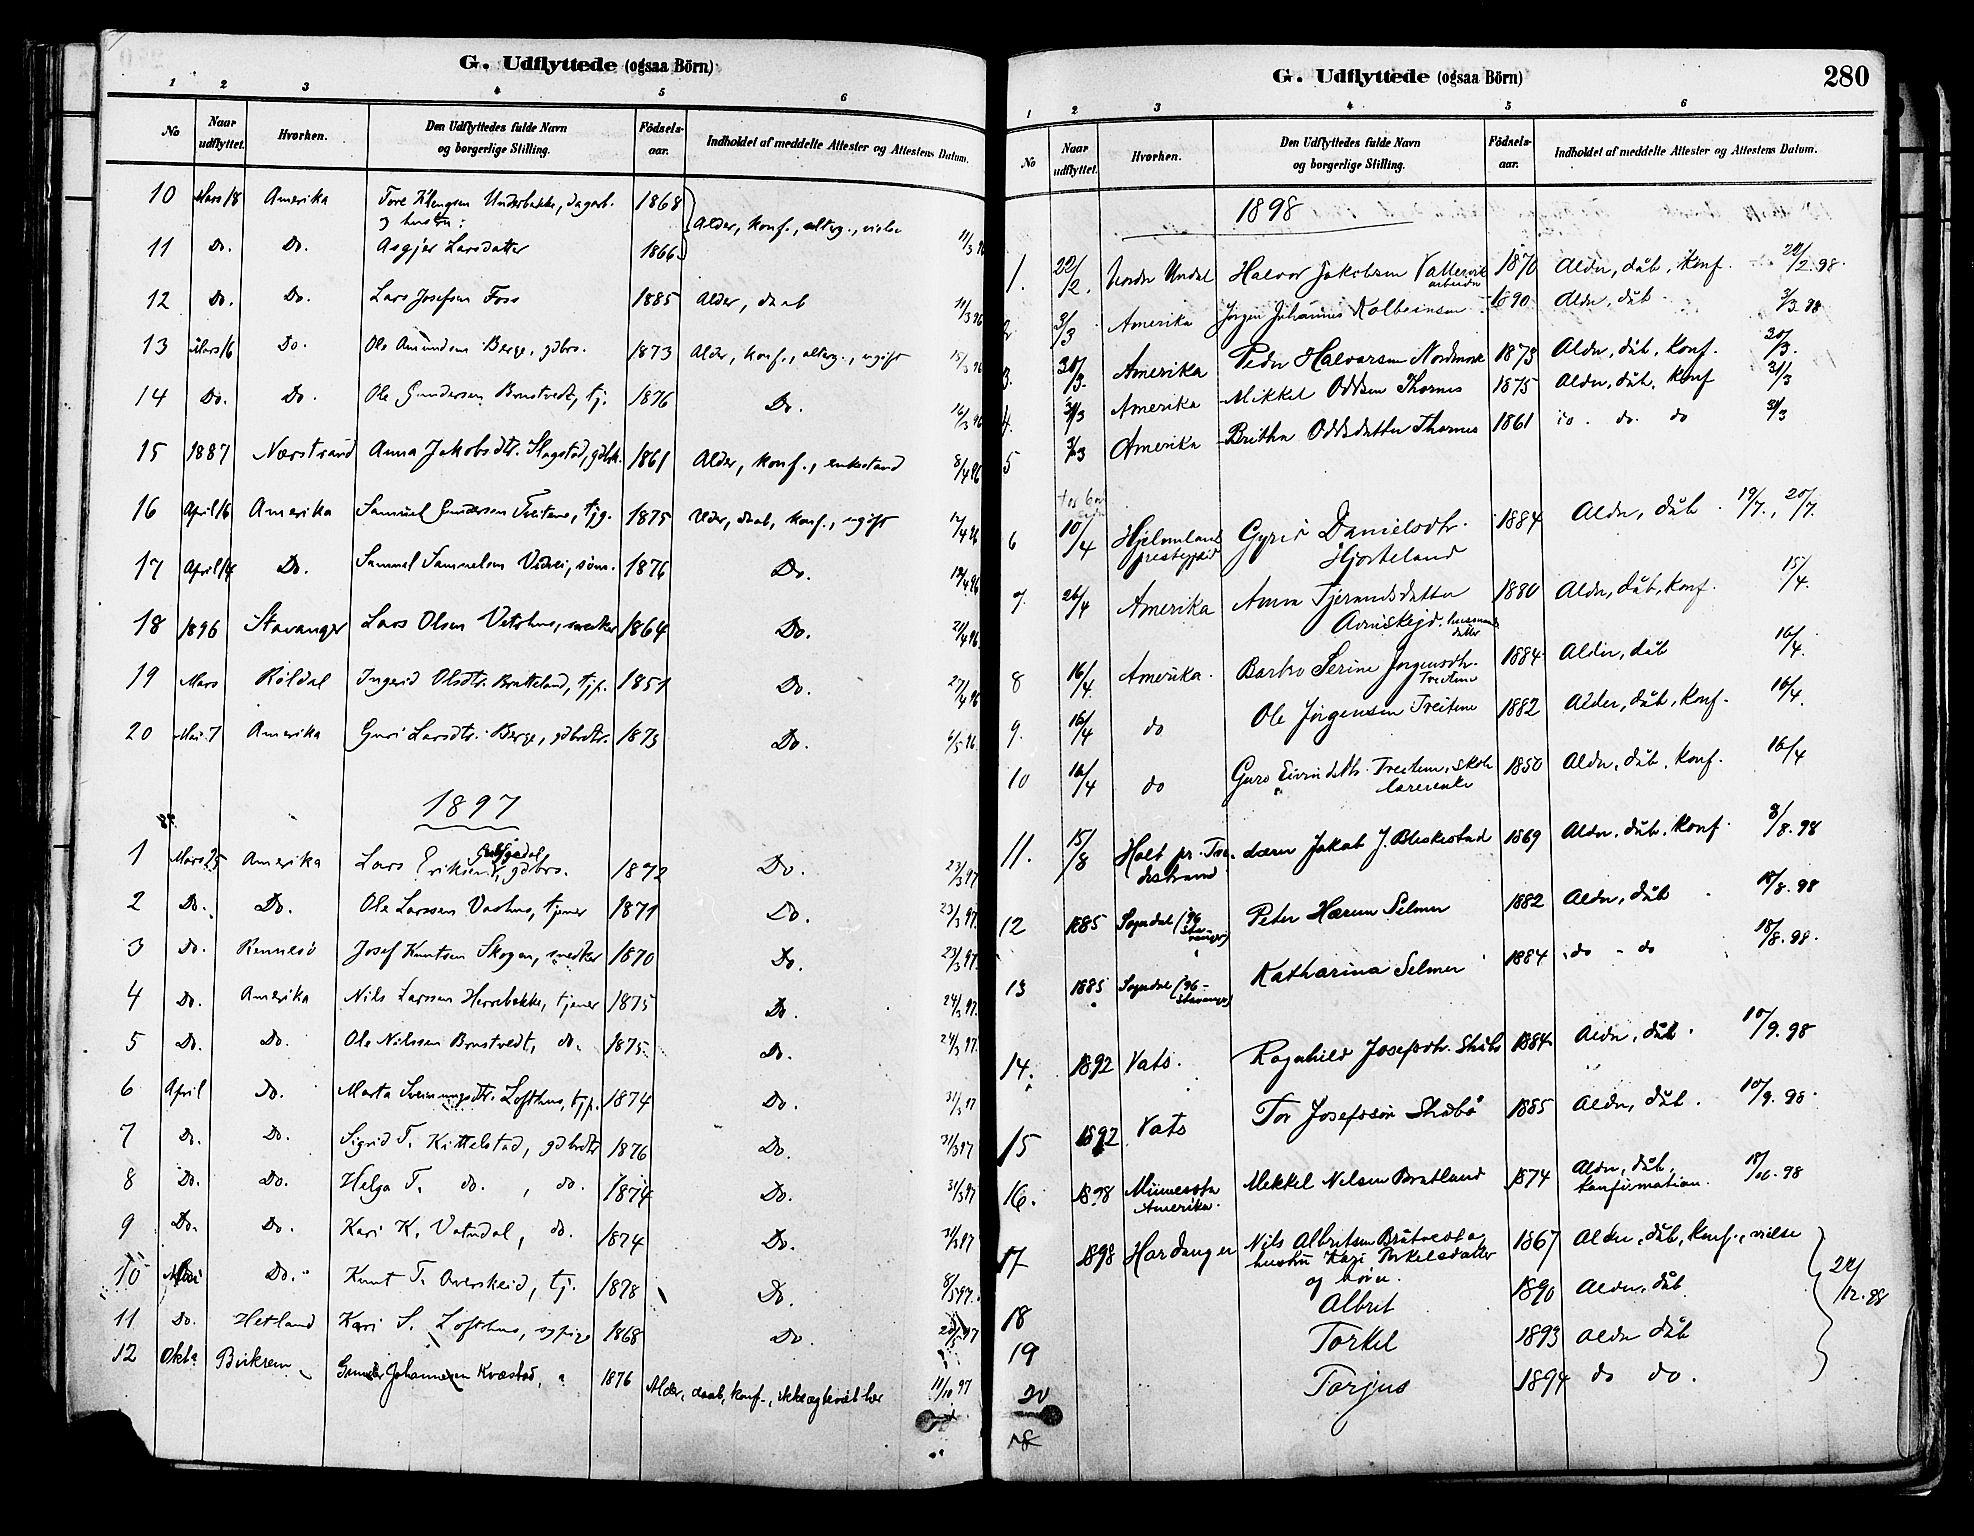 G. Udflyttede (ogsaa Börn)
1 2 3 4 5 6
No Naar udflyttet. Hvorhen. Den Udflyttedes fulde Navn og borgerlige Stilling. Födsels-aar. Indholdet af meddelte Attester og Attestens Datum.
10 Mars 18 Amerika Tore Underbakke, dagarb. 1868
og hustru: Alder, konf., alterg., vielse 11/3 96
11 Do. Do. Asgjer Larsdatter 1866
12 Do. Do. Lars Josefsen Foss 1885 Alder, daab 11/3 96
13 Mars 16 Do. Ole Amundsen Berge, gdbrs. 1873 Alder, konf., alterg., ugift 15/3 96
14 Do. Do. Ole Gundersen Brustvedt, tj. 1876 Do. 16/3 96
15 1887 Nærstrand Anna Jakobsdtr. Slagstad, 1861 Alder, konf., enkestand 8/4 96
16 April 16 Amerika Samuel Gundersen Treitene, tjg. 1875 Alder, daab, konf., ugift 14/4 96
17 April 14 Do. Samuel Samuelsen Vidvei, søm. 1876 Do. 14/4 96
18 1896 Stavanger Lars Olsen Vatshus, snedker 1864 Do. 21/4 96
19 Mars Røldal Ingerid Olsdtr. Bratteland, tjp. 1851 Do. 27/4 96
20 Mai 7 Amerika Guri Larsdtr. Berge, gdbrdtr. 1873 Do. 6/5 96.
1897
1 Mars 25 Amerika Lars Eriksen, gdbrs. 1872 Do. 23/3 97
2 Do. Do. Ole Larssen Vashus, tjener 1871 Do. 23/3 97.
3 Do. Rennesö Josef Knutsen Skogen, snedker 1870 Do. 23/3 97.
4 Do. Amerika Nils Larssen Herrebakke, tjener 1875 Do. 24/3 97.
5 Do. Do. Ole Nilssen Brustvedt, do. 1875. Do. 24/3 97.
6 April Do. Marta Sveinungsdtr. Lofthus, tjp. 1874 Do. 31/3 97
7 D. Do. Sigrid T. Kittelstad, gdbrdtr 1876 Do. 31/3 97
8 Do. Do. Helga T. do. , do. 1874 Do. 31/3 97
9 Do. Do. Kari K. Vatndal, do. 1874 Do. 31/3 97
10 Mai Do. Knut T. Overskeid, tj. 1878 Do. 8/5 97.
11 Do. Hetland Kari S. Lofthus, sypige 1868 Do 20/5 97
12 Okto Birkrem Gunder Johannesen Kvæstad, " 1876 Alder, daab, konf., ikke ægteviet her 11/10 97
G. Udflyttede (ogsaa Börn) 280
1 2 3 4 5 6
No Naar udflyttet. Hvorhen. Den Udflyttedes fulde Navn og borgerlige Stilling. Födsels-aar. Indholdet af meddelte Attester og Attestens Datum.
1898
1. 22/2. Nordre Undal Halvor Jakobsen Vallesvik 1870 Alder, dåb, konf. 22/2. 98.
arbeider
2 3/3 Amerika Jørgen Johannes Kolbeinsen 1890 Alder, dåb 3/3 98
3. 20/3. Amerika Peder Halvorsen Nordmork 1873 Alder, dåb, konf. 20/3.
4. 31/3 Amerika Mikkel Oddsen Thornes 1875 Alder, dåb, konf 31/3
5 31/3 Amerika Britha Oddsdatter Thornes 1861 do. do. do 31/3
6 10/4 Hjelmeland Gyrid Danielsdtr. 1884 Alder, dåb. 19/7., 20/7.
prestegjeld Hjorteland
7. 26/4 Amerika Anna Tjerandsdatter 1880 Alder, dåb, konf. 15/4.
husmands datter
8 16/4. Amerika. Barbro Serine Jørgensdtr. 1884 Alder, dåb 16/4.
Treitene
9. 16/4 do Ole Jørgensen Treitene 1882 Alder, dåb, konf. 16/4.
10 16/4 do Guro Eivindsdtr. Treitene, skole 1850 Alder, dåb, konf. 16/4
lærerenke
11. 15/8 Holt pr. Tve- lærer Jakob J. Bleskestad 1869 Alder, dåb, konf. 8/8. 98
destrand
12 1885 Sogndal (96 Stavanger) Peter Hærem Selmer 1882 Alder, dåb 18/8. 98
13 1885 Sogndal (96- Stavanger) Katharina Selmer 1884 do - do 18/8. 98.
14. 1892 Vats. Ragnhild Josefsdtr. Skåbø 1884 Alder, dåb. 10/9. 98
15 1892 Vats Tor Josefssøn Skåbø 1885 Alder, dåb. 10/9. 98.
16. 1898 Minnesota Mikkel Nilsen Bratland 1874 Alder, dåb, 18/10. 98
Amerika. konfirmation.
17 1898 Hardanger Nils Albritsen Bråtveit og 1867 Alder, dåb, konf., vielse
hustru Kari Torkelsdatter
og børn.
18 Albrit 1890 Alder, dåb 24/12. 98
19 Torkel 1893 Alder dåb
20 Torjus 1894 do do.
18